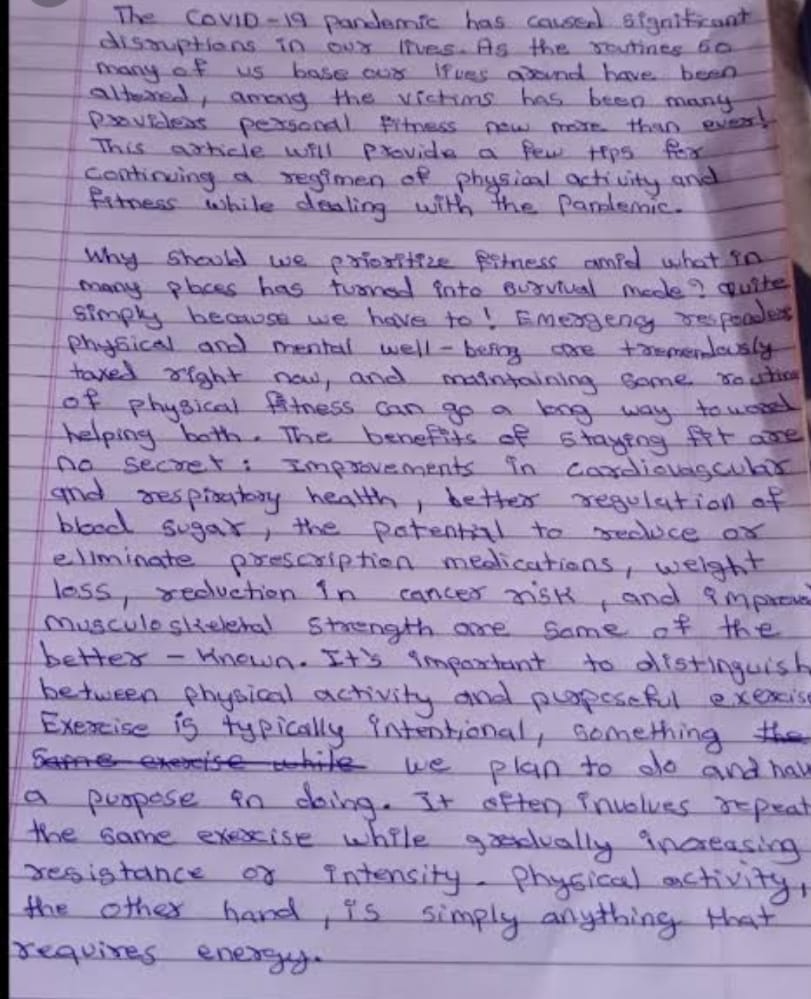 The COVID-19 pandemic has caused significant
disruptions in our lives. As the routines so
many of us base our lives around have been
altered, among the victims has been many
providers personal fitness now more than ever!
This article will provide a few tips for
continuing a regimen of physical activity and
fitness while dealing with the Pandemic.
Why should we prioritize fitness amid what in
many places has turned into survival mode? Quite
simply because we have to! Emergency responders
physical and mental well-being are tremendously
taxed right now, and maintaining some routine
of physical fitness can go a long way toward
helping both. The benefits of staying fit are
no secret: Improvements in cardiovascular
and respiratory health, better regulation of
blood sugar, the potential to reduce or
eliminate prescription medications, weight
loss, reduction in cancer risk, and improve
musculoskeletal strength are some of the
better-known. It's important to distinguish
between physical activity and purposeful exercis
Exercise is typically intentional, something the
same exercise while we plan to do and hav
a purpose in doing. It often involves repeat
the same exercise while gradually increasing
resistance or intensity. Physical activity,
the other hand, is simply anything that
requires energy.